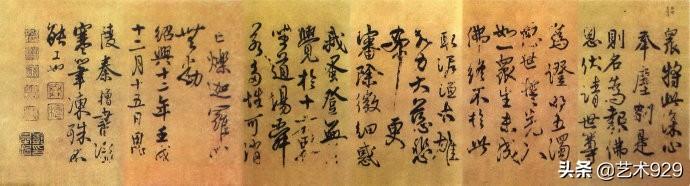 衆將此深心
奉塵刹是
則名為報佛
恩伏請世尊
為證明五濁
惡世誓先入
如一衆生未成
佛終不於此
取泥洹大雄
大力大慈悲
希更
審除微細惑
我蚤登無
覺於十方界
坐道場舜
若多性可消
亡爍迦羅心
無動
紹興十二年壬戌
十二月十五日
陵秦檜書
寒筆凍殊不
能工也
头条 @艺术929